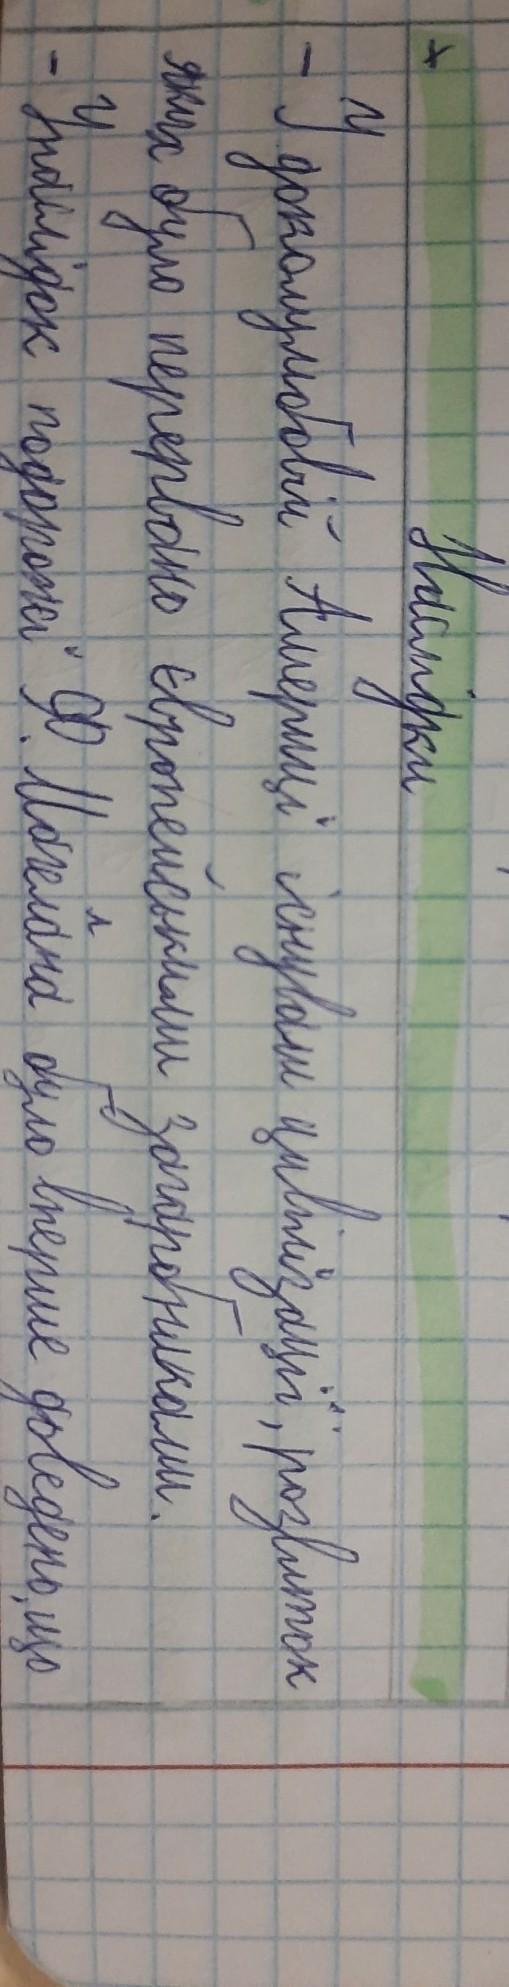 +
Наслідки
- У доколумбовій Америці існували цивілізації, розвиток
яких було перервано європейськими загарбниками.
- Унаслідок подорожей Ф. Магеллана було вперше доведено, що